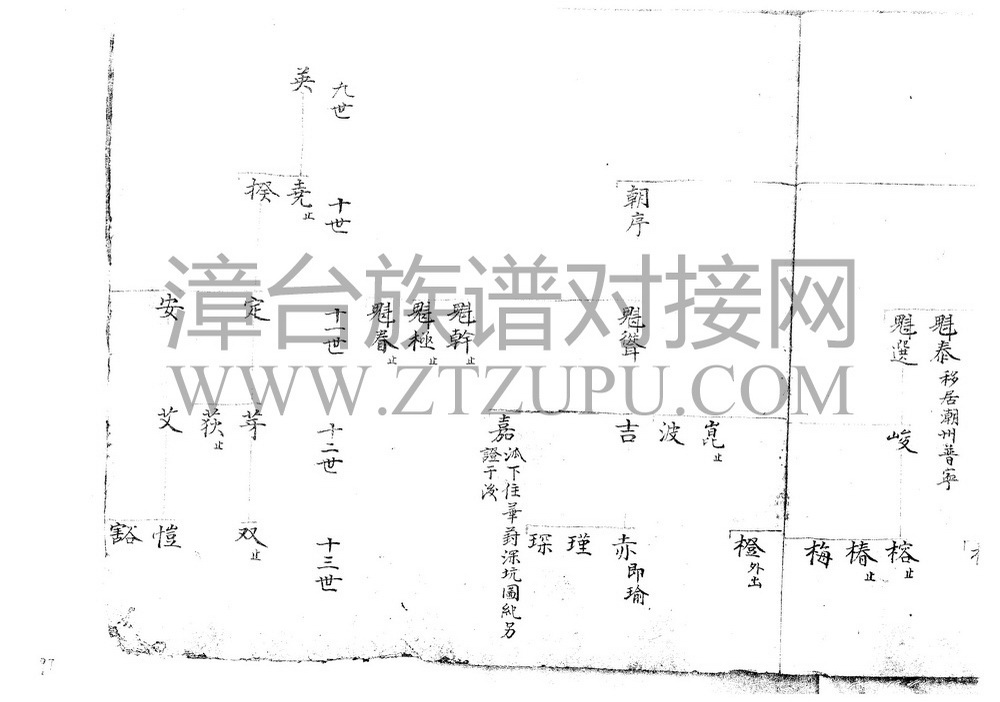 魁泰 移居潮州普寧
魁選
峻
榕 止
椿 止
梅
朝序
魁聳
崑 止
波
吉
嘉 派下住華封深坑圖紀另
證于後
橙 外出
赤 即瑜
瑾
琛
魁幹 止
魁極 止
魁春 止
九世
十世
十一世
十二世
十三世
英
堯 止
揆
定
安
芽
荻 止
艾
双 止
愷
豁
漳台族谱对接网
WWW.ZTZUPU.COM